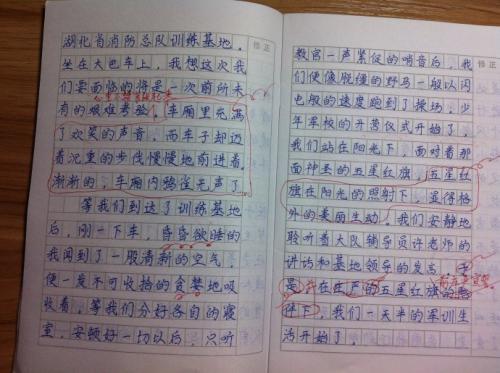 湖北省消防总队训练基地。
坐在大巴车上,我想这次我
们要面临的将是一次前所未
有的艰难考验。车厢里充满
了欢笑的声音,而车子却迈
着沉重的步伐慢慢地前进着,
渐渐的,车厢内鸦雀无声了。
等我们到达了训练基地
后,刚一下车,昏昏欲睡的
我闻到了一股清新的空气,
便一发不可收拾的贪婪地吸
收着,等我们分好各自的寝
室,安顿好一切以后,只听
修正
教官一声紧促的哨音后,我
们便像脱缰的野马一般以闪
电般的速度跑到了操场,少
年军校的开营仪式开始了,
我们站在阳光下,面对着那
面神圣的五星红旗,五星红
旗在阳光的照射下,显得格
外的美丽生动。我们安静地
聆听着大队辅导员许老师的
讲话和基地领导的发言,于
是,我在庄严的五星红旗的
伴下,我们一天半的军训生
活开始了。
修正